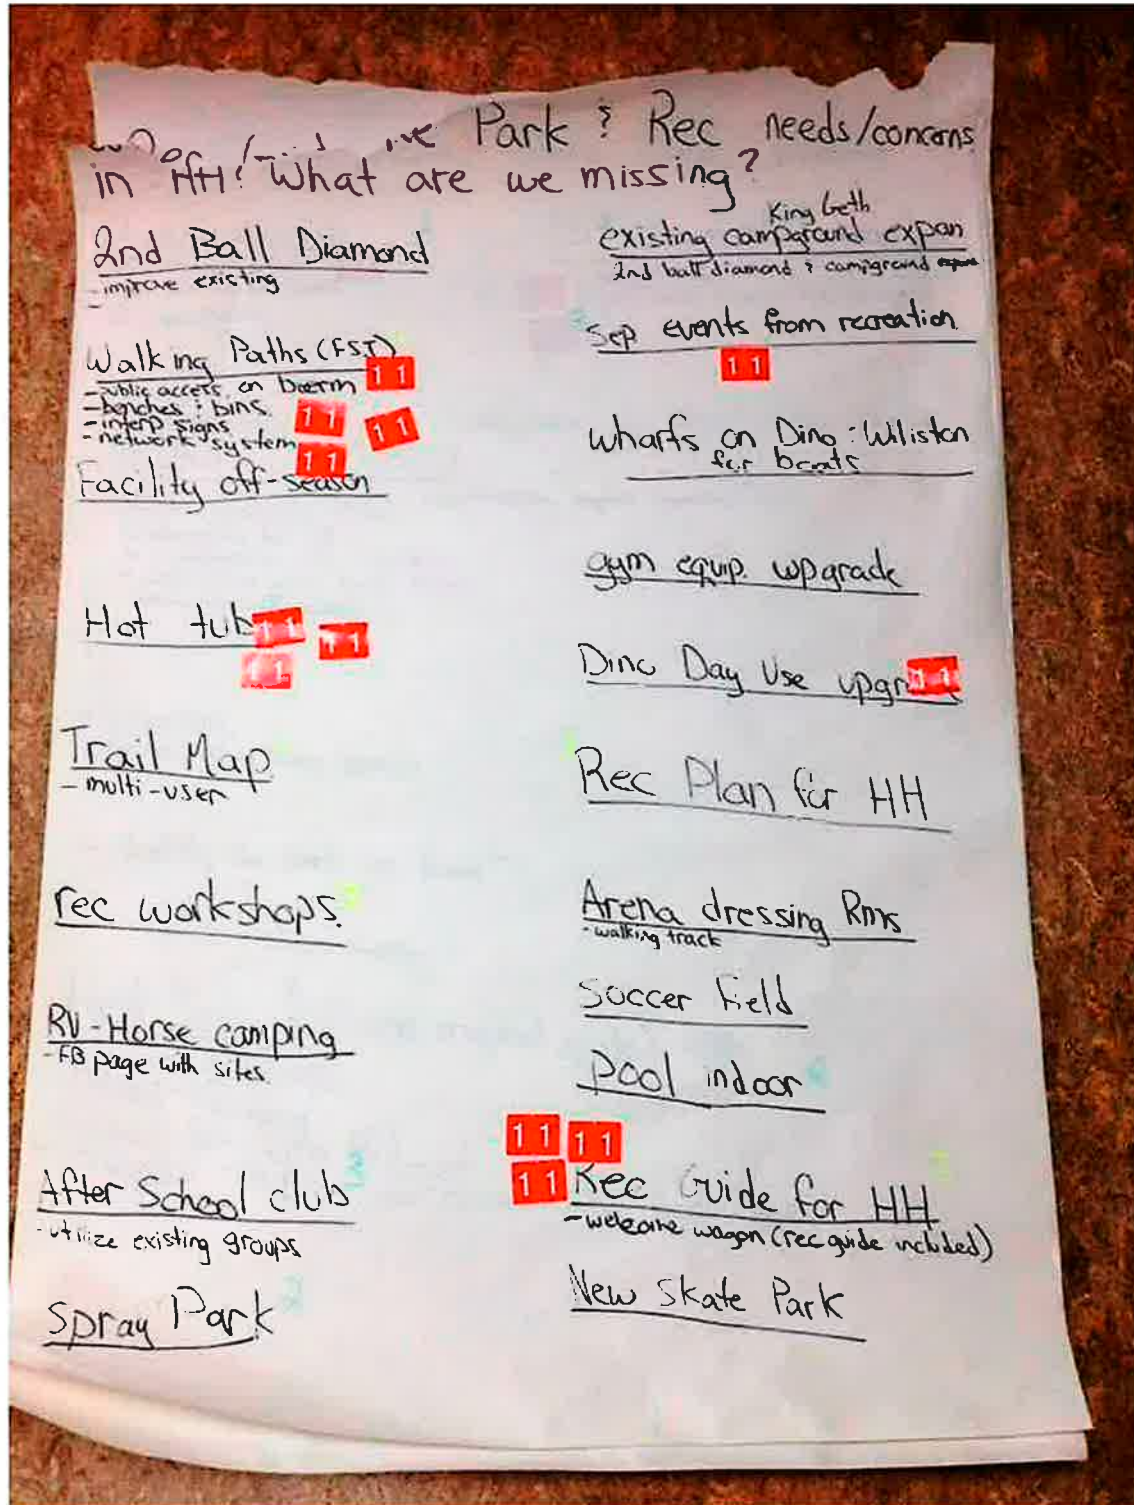 Park & Rec needs/concerns
in HH? What are we missing?
2nd Ball Diamond
- improve existing
-
Walking Paths (FSJ)
- public access on boerm
- benches & bins
- interp signs
- network system
Facility off-season
Hot tub
Trail Map
- multi-user
rec workshops
RV-Horse camping
- FB page with sites
After School club
- utilize existing groups
Spray Park
King Geth
existing campground expan
2nd ball diamond & campground
Sep events from recreation
Wharfs on Dino & Wiliston
for boats
gym equip. upgrade
Dino Day Use
Rec Plan for HH
Arena dressing Rms
- walking track
Soccer Field
Pool indoor
Rec Guide for HH
- welcome wagon (rec guide included)
New Skate Park
11
11
11
11
11
11
11
11
11
11
11
11